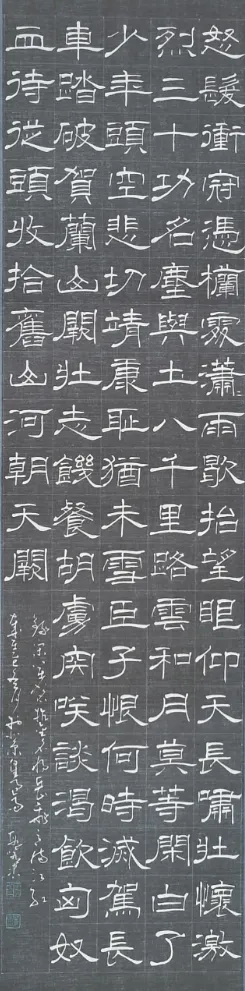 怒髮衝冠憑欄處瀟〻雨歇抬望眼仰天長嘯壯懷激
烈三十功名塵與土八千里路雲和月莫等閑白了
少年頭空悲切靖康耻猶未雪臣子恨何時滅駕長
車踏破賀蘭山闕壯志饑餐胡虜肉笑談渴飲匈奴
血待從頭收拾舊山河朝天闕
岳飛滿江紅